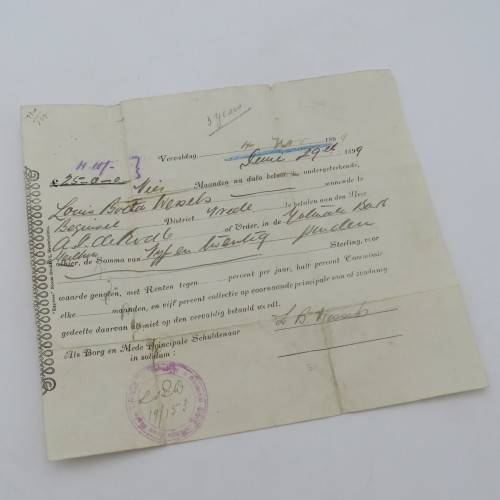 3 years
Vervaldag 4 Nov 1899
4 10/-
£ 25-0-0 June 29th 1899
Vier Maanden na dato beloof ondergeteekende,
Louis Botha Wessels wonende te
Beginsel District Vrede te betalen aan den Heer
A. S. of Order, in de
alhier, de Somma van Vyf en twintig ponden
Sterling, voor
waarde genoten, met Renten tegen percent per jaar, half percent Commissie
elke maanden, en vijf percent collectie op voornoemde principale som of zoodanig
gedeelte daarvan als niet op den vervaldag betaald wordt.
Als Borg en Mede Principale Schuldenaar
in solidum:
L B Wessels